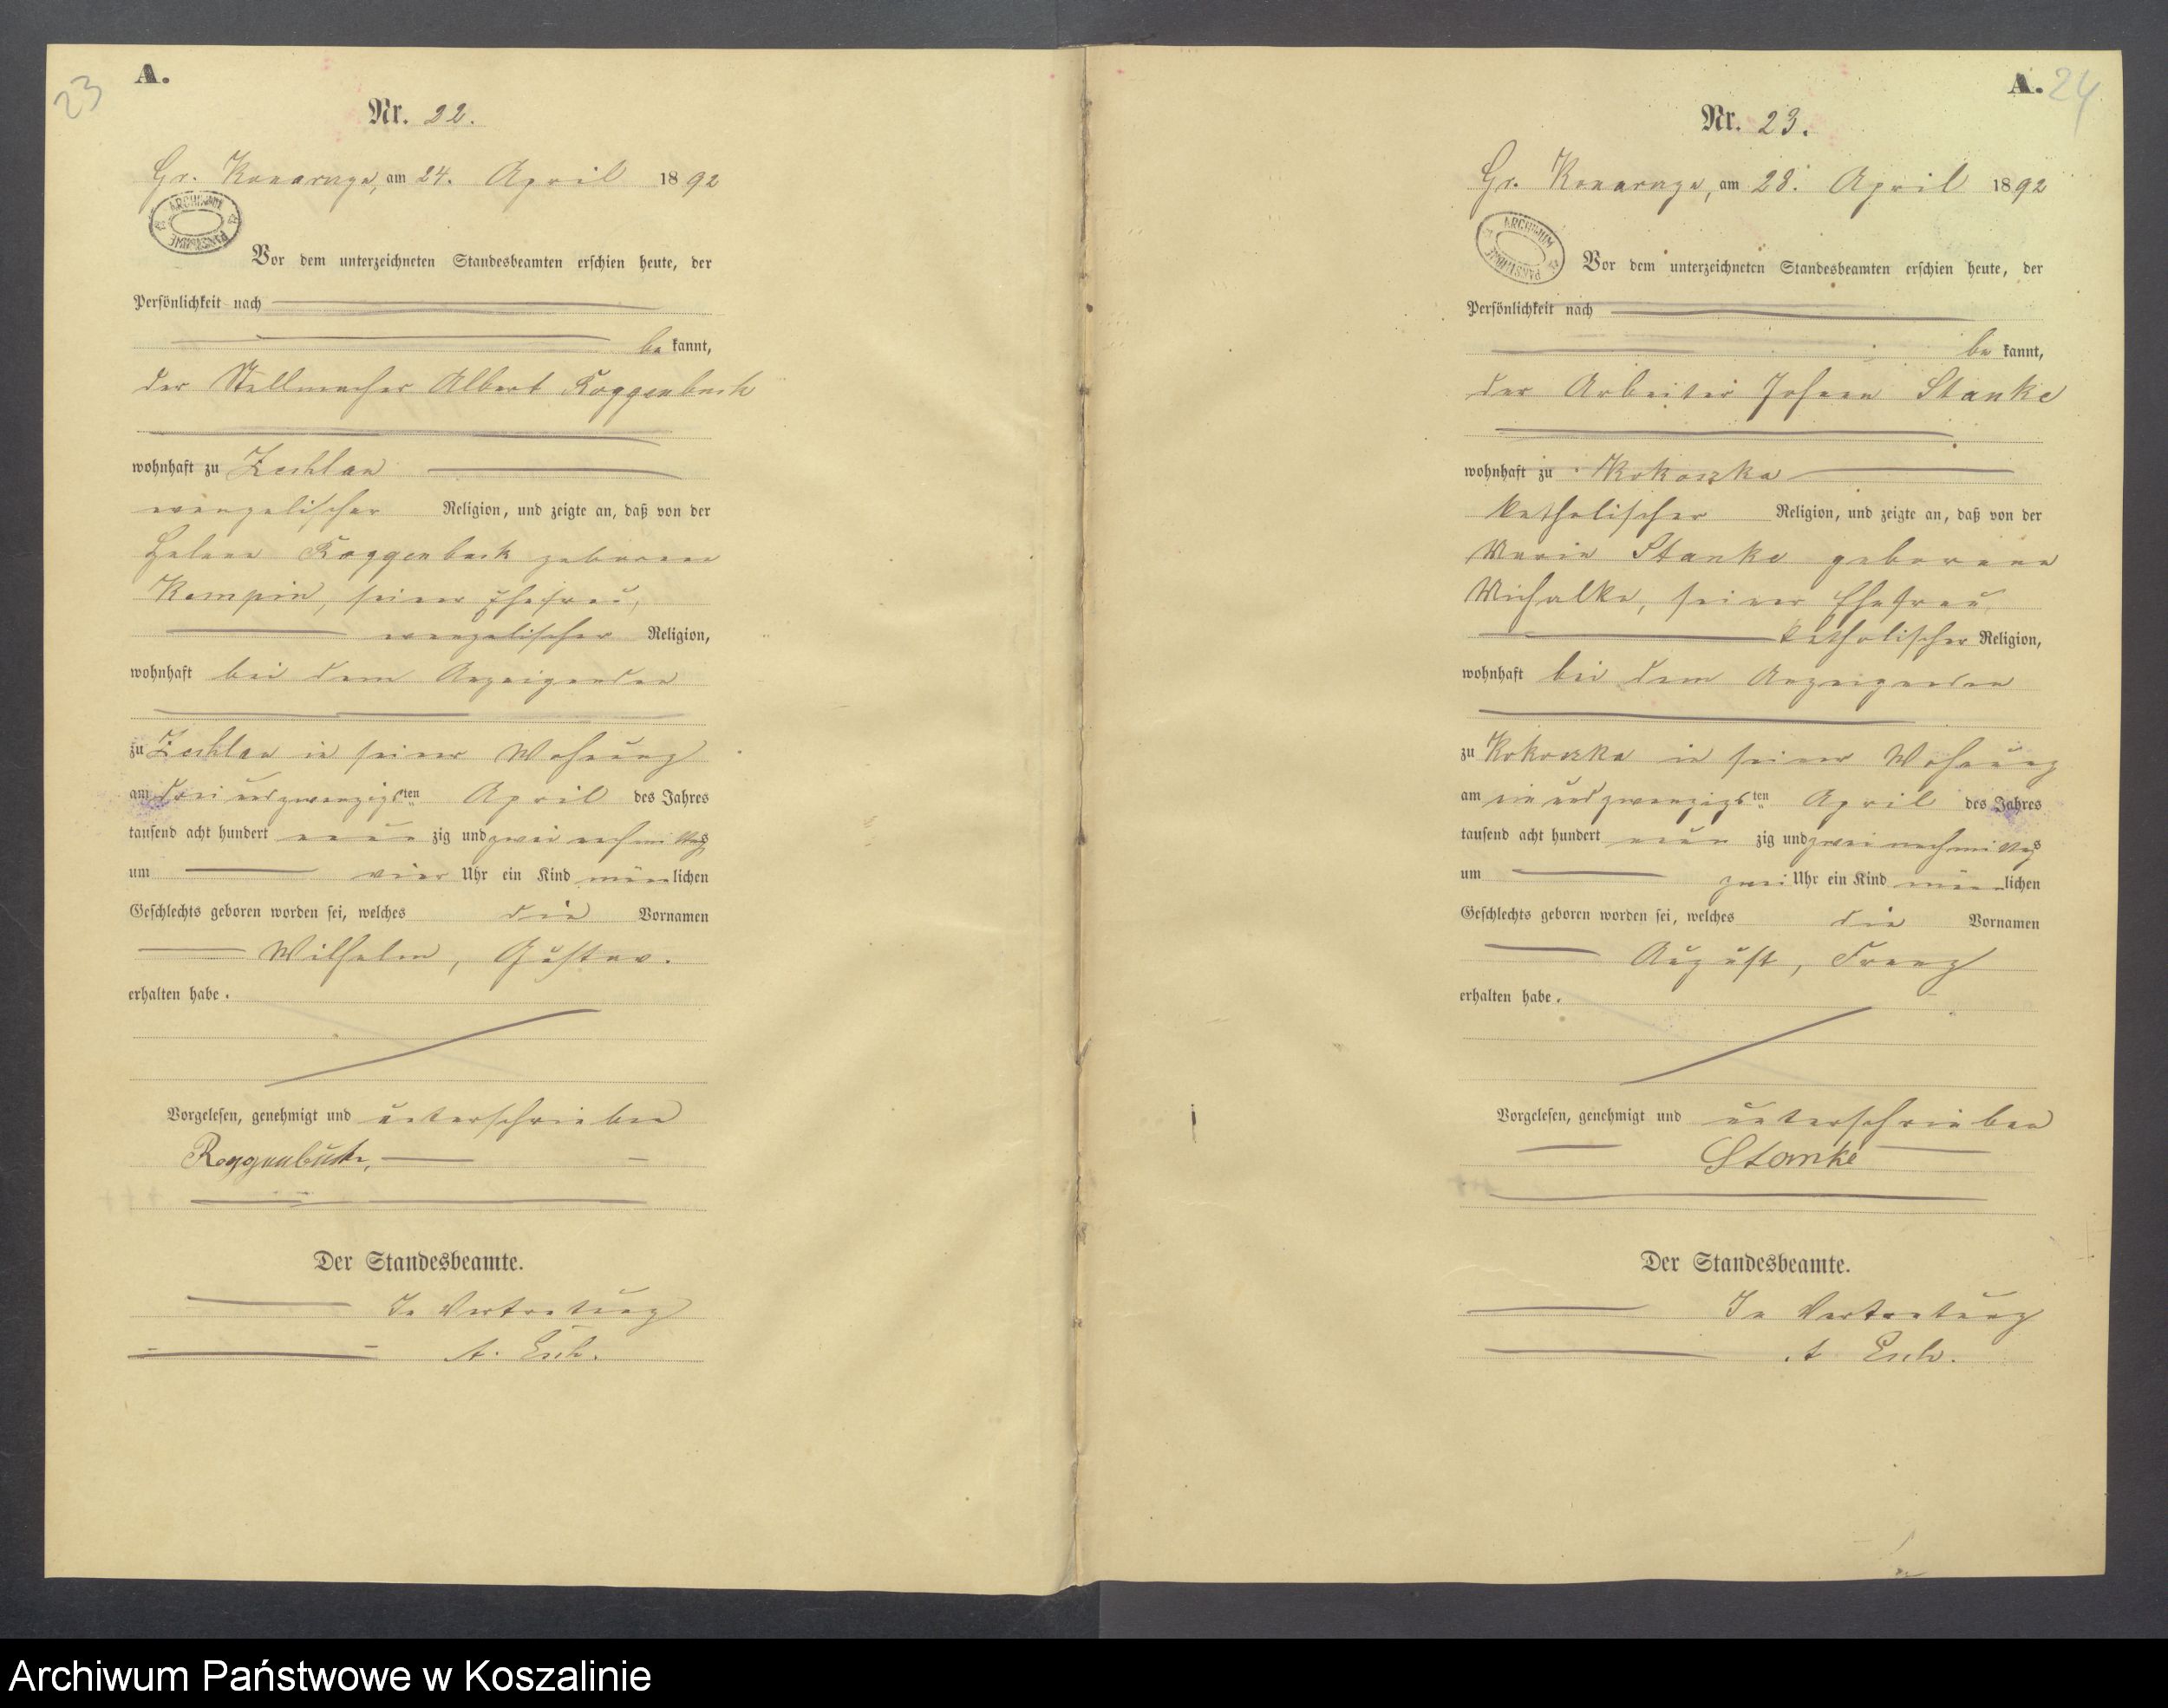 23
A.
Nr. 22.
Gr. Konarzyn, am 24. April 1892
ARCHIWUM PAŃSTWOWE
Vor dem unterzeichneten Standesbeamten erschien heute, der
Persönlichkeit nach
be kannt,
der Stellmacher Albert Roggenbuck
wohnhaft zu Zechlau
evangelischer Religion, und zeigte an, daß von der
Helene Roggenbuck geborene
Kempin, seiner Ehefrau,
evangelischer Religion,
wohnhaft bei dem Anzeigenden
zu Zechlau in seiner Wohnung
am drei und zwanzigsten April des Jahres
tausend acht hundert neun zig und zwei nachmittags
um vier Uhr ein Kind männlichen
Geschlechts geboren worden sei, welches die Vornamen
Wilhelm, Gustav.
erhalten habe.
Vorgelesen, genehmigt und unterschrieben
Roggenbuck,
Der Standesbeamte.
In Vertretung
A. Esch.
A. 24
Nr. 23.
Gr. Konarzyn, am 28. April 1892
ARCHIWUM PAŃSTWOWE
Vor dem unterzeichneten Standesbeamten erschien heute, der
Persönlichkeit nach
be kannt,
der Arbeiter Johann Stanke
wohnhaft zu Kokoszka
katholischer Religion, und zeigte an, daß von der
Maria Stanke geborene
Michalke, seiner Ehefrau,
katholischer Religion,
wohnhaft bei dem Anzeigenden
zu Kokoszka in seiner Wohnung
am ein und zwanzigsten April des Jahres
tausend acht hundert neun zig und zwei nachmittags
um zwei Uhr ein Kind männlichen
Geschlechts geboren worden sei, welches die Vornamen
August, Franz
erhalten habe.
Vorgelesen, genehmigt und unterschrieben
Stanke
Der Standesbeamte.
In Vertretung
A Esch.
Archiwum Państwowe w Koszalinie